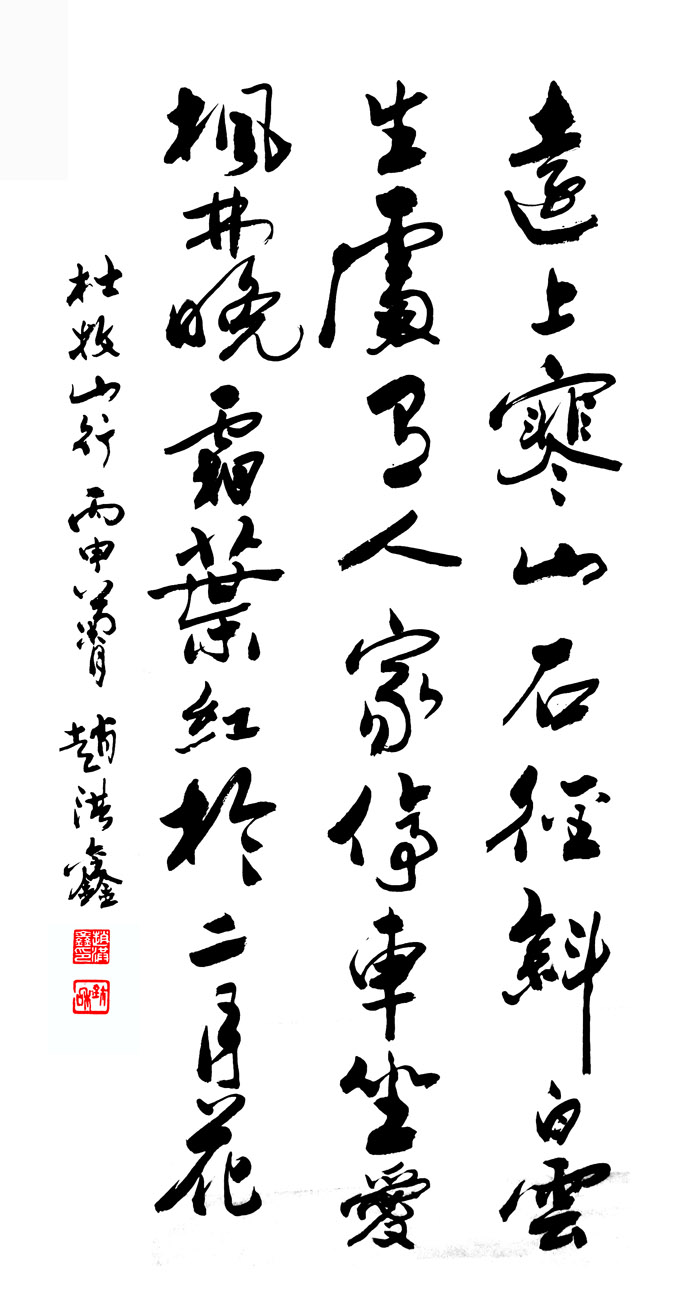 遠上寒山石徑斜白雲
生處有人家停車坐愛
楓林晚霜葉紅於二月花
杜牧山行丙申趙洪鑫
趙洪鑫印